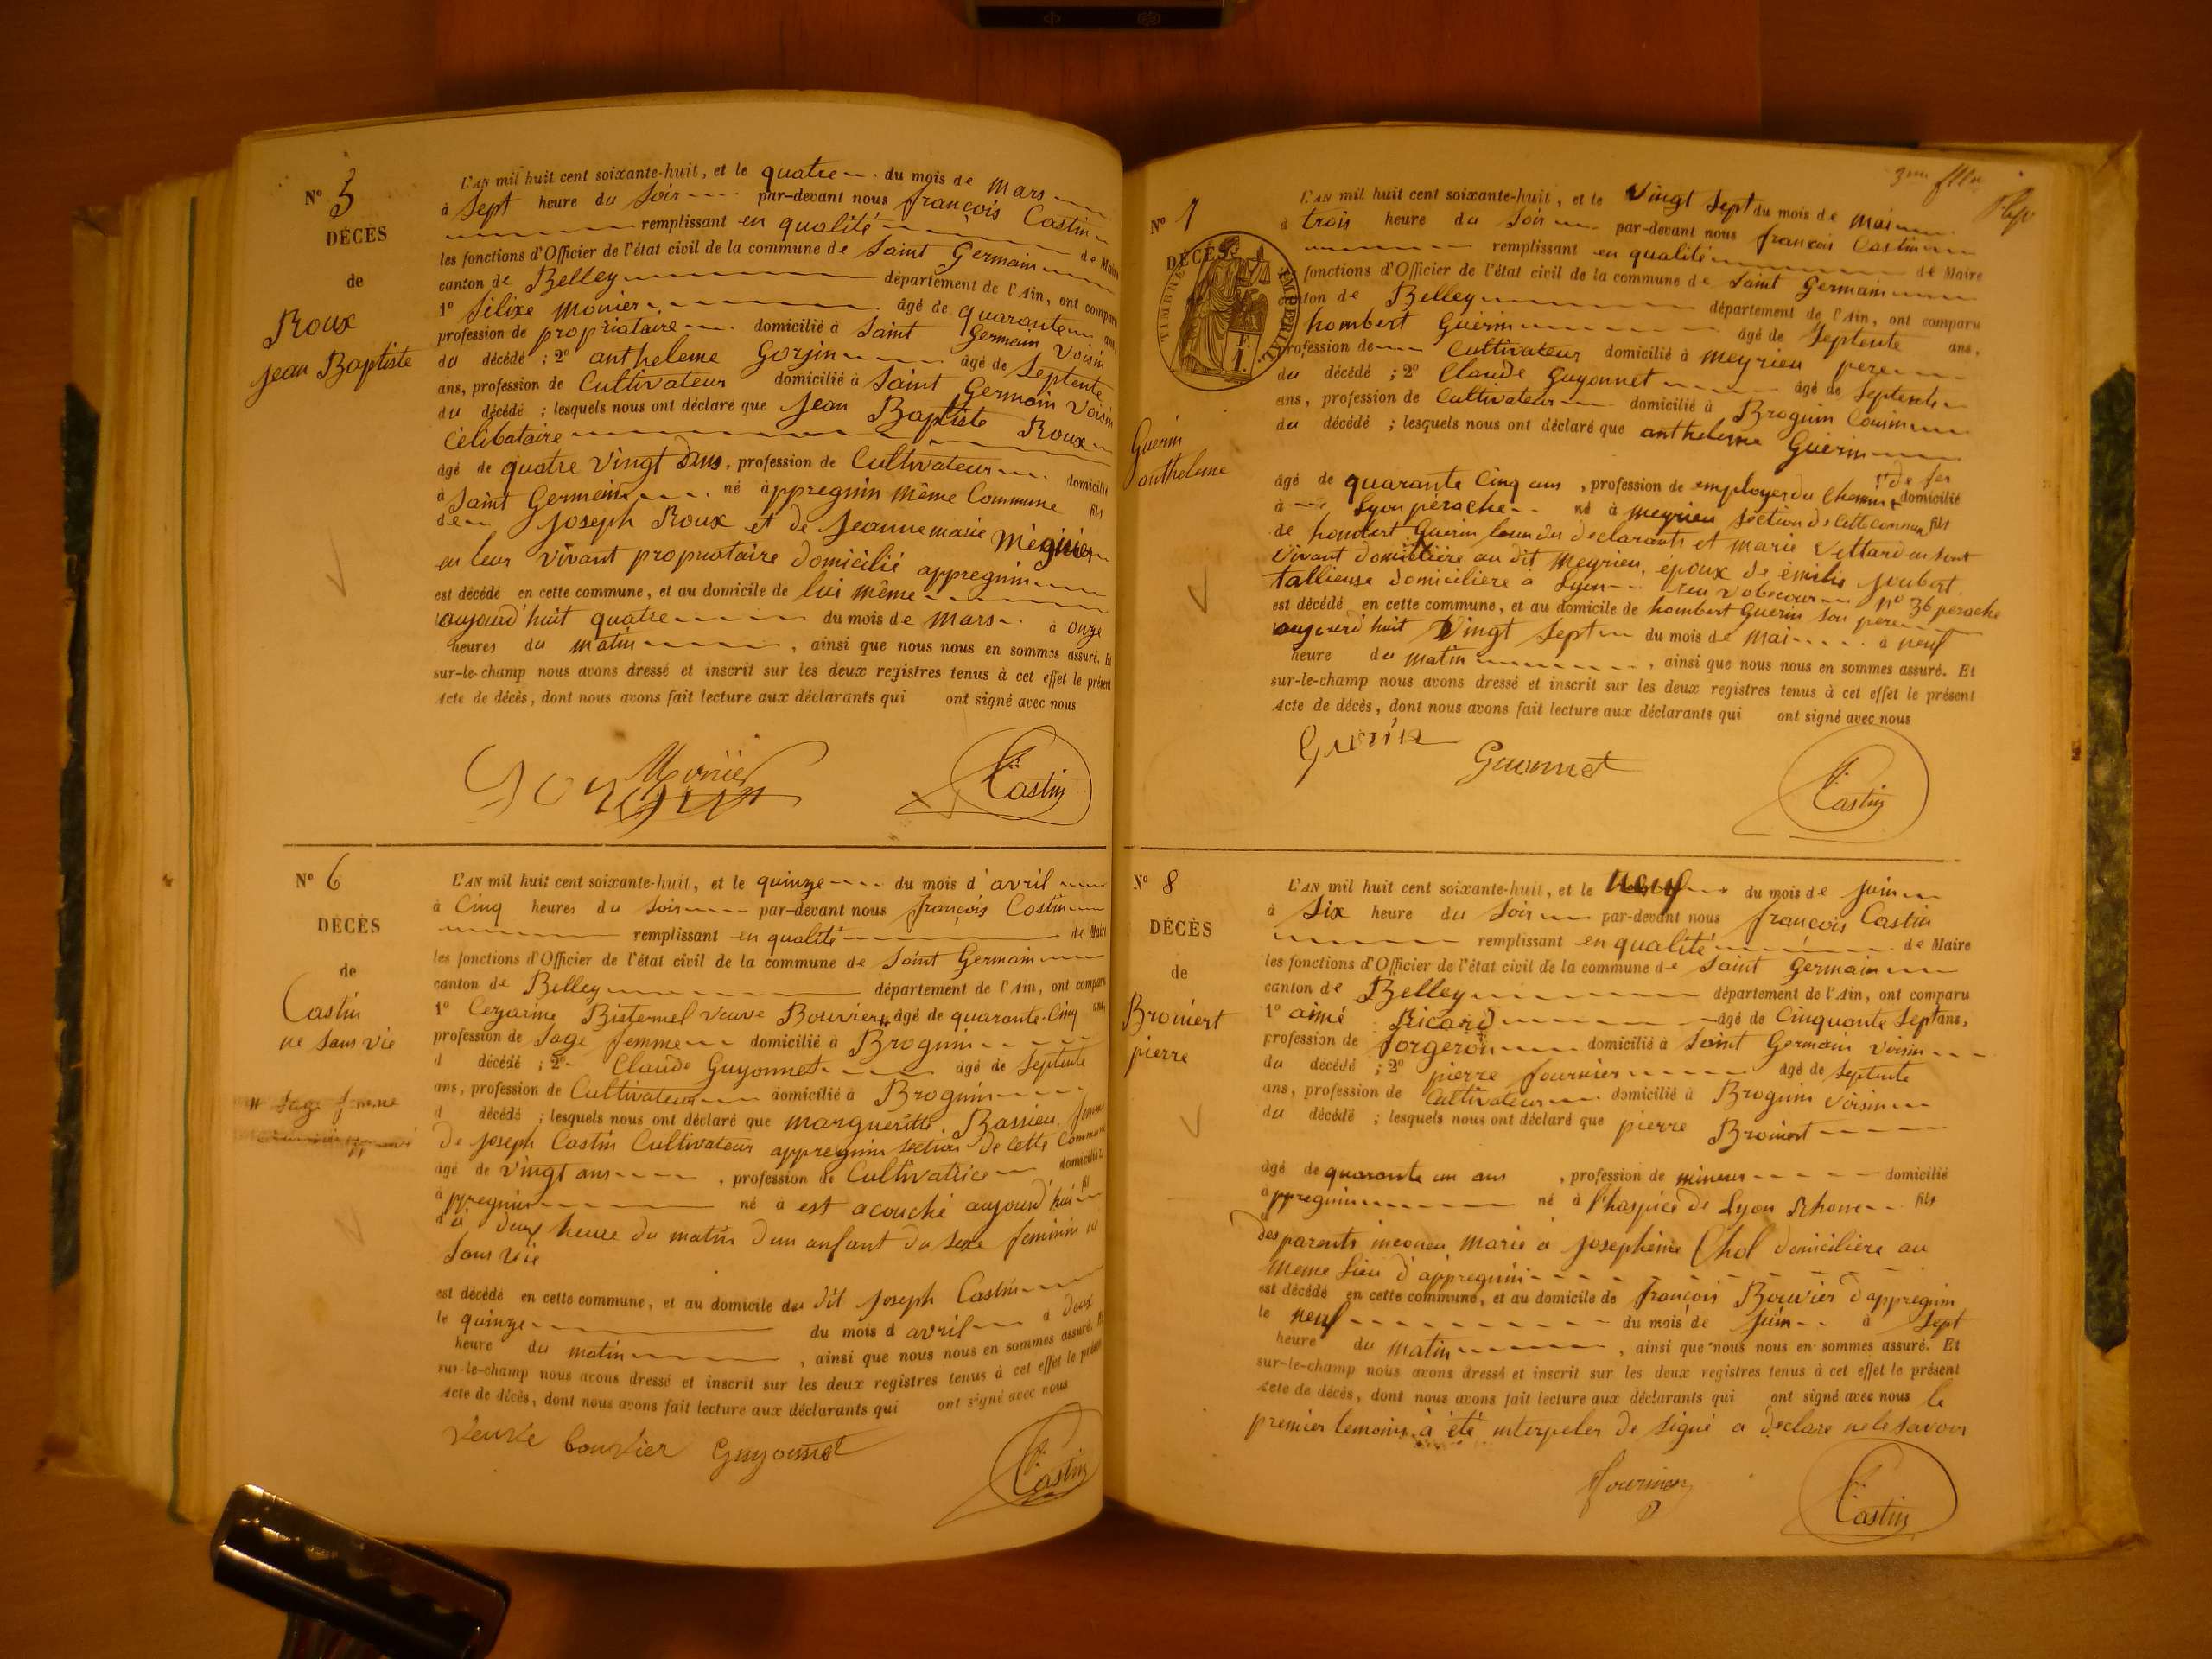 N° 5
DÉCES
de
Roux
jean Baptiste
L'AN mil huit cent soixante-huit, et le quatre du mois de mars
à sept heure du soir par-devant nous françois Castin
remplissant en qualité de Maire
les fonctions d'Officier de l'état civil de la commune de Saint Germain
canton de Belley département de l'Ain, ont comparu
1° félixe monier âgé de quarante ans
profession de propriataire domicilié à Saint Germain Voisin
du décédé ; 2° antheleme Gorjin âgé de Septente
ans, profession de Cultivateur domicilié à Saint Germain Voisin
du décédé ; lesquels nous ont déclaré que jean Baptiste Roux
Célibataire
âgé de quatre vingt ans, profession de Cultivateur domicilié
à Saint Germain né appregnin même Commune fils
de joseph Roux et de jeanne marie
en leur vivant propriataire domicilié appregnin
est décédé en cette commune, et au domicile de lui même
aujourd'huit quatre du mois de mars à onze
heures du matin, ainsi que nous nous en sommes assuré. Et
sur-le-champ nous avons dressé et inscrit sur les deux registres tenus à cet effet le présent
Acte de décès, dont nous avons fait lecture aux déclarants qui ont signé avec nous
Monier
Castin
N° 6
DÉCÈS
de
Castin
ne sans vie
# Sage femme
L'AN mil huit cent soixante-huit, et le quinze du mois d'avril
à Cinq heures du soir par-devant nous françois Castin
remplissant en qualité de Maire
les fonctions d'Officier de l'état civil de la commune de Saint Germain
canton de Belley département de l'Ain, ont comparu
1° Cezarine Bisternel veuve Bouvier # âgé de quarante-Cinq ans
profession de Sage femme domicilié à Brognin
d décédé ; 2° Claude Guyonnet âgé de Septente
ans, profession de Cultivateur domicilié à Brognin
d décédé ; lesquels nous ont déclaré que margueritte Bassieu, femme
de joseph Castin Cultivateur appregnin section de cette Commune
âgé de vingt ans, profession de Cultivatrice domicilié
à ppregnin né à est acouché aujourd'hui fil
d à deux heure du matin d'un anfant du sexe feminin né
sans vie
est décédé en cette commune, et au domicile du dit joseph Castin
le quinze du mois d avril à deux
heure du matin, ainsi que nous nous en sommes assuré. Et
sur-le-champ nous avons dressé et inscrit sur les deux registres tenus à cet effet le présent
Acte de décès, dont nous avons fait lecture aux déclarants qui ont signé avec nous
veuve bouvier Guyonnet
Castin
N° 7
DÉCÈS
TIMBRE IMPERIAL
F. 1.
Guerin
anthelme
L'AN mil huit cent soixante-huit, et le Vingt Sept du mois de mai
à trois heure du soir par-devant nous francois Castin
remplissant en qualité de Maire
fonctions d'Officier de l'état civil de la commune de Saint Germain
canton de Belley département de l'Ain, ont comparu
hombert Guerin âgé de Septente ans,
profession de Cultivateur domicilié à meyrieu pere
du décédé ; 2° Claude Guyonnet âgé de Septente
ans, profession de Cultivateur domicilié à Brognin Cousin
du décédé ; lesquels nous ont déclaré que antheleme Guerin
âgé de quarante Cinq ans, profession de employer du chemin de fer domicilié
à Lyon pérache né à meyrieu section de cette commune fils
de hombert Guerin l'un des declarants et marie Vettard en sont
vivant domicilière au dit meyrieu, epoux de émilie joubert
tallieuse domicilière à Lyon n° 36 perache
est décédé en cette commune, et au domicile de hombert Guerin son pere
aujourd'huit Vingt Sept du mois de mai à neuf
heure du matin, ainsi que nous nous en sommes assuré. Et
sur-le-champ nous avons dressé et inscrit sur les deux registres tenus à cet effet le présent
Acte de décès, dont nous avons fait lecture aux déclarants qui ont signé avec nous
Guerin
Guonnet
Castin
N° 8
DÉCÈS
de
Broniert
pierre
L'AN mil huit cent soixante-huit, et le neuf du mois de juin
à Six heure du soir par-devant nous françois Castin
remplissant en qualité de Maire
les fonctions d'Officier de l'état civil de la commune de Saint Germain
canton de Belley département de l'Ain, ont comparu
1° aimé Ricard âgé de Cinquante Sept ans,
profession de forgeron domicilié à Saint Germain voisin
du décédé ; 2° pierre fournier âgé de Septente
ans, profession de Cultivateur domicilié à Brognin Voisin
du décédé ; lesquels nous ont déclaré que pierre Broniert
âgé de quarante un ans, profession de mineur domicilié
à ppregnin né à l'hospice de Lyon Rhone fils
des parents inconeu marie a josephine Chol domicilière au
meme Lieu d'appregnin
est décédé en cette commune, et au domicile de françois Bouvier d'appregnin
le neuf du mois de juin à Sept
heure du matin, ainsi que nous nous en sommes assuré. Et
sur-le-champ nous avons dressé et inscrit sur les deux registres tenus à cet effet le présent
Acte de décès, dont nous avons fait lecture aux déclarants qui ont signé avec nous le
premier temoins à été interpeler de signé a declare ne le savoir
fournier
Castin